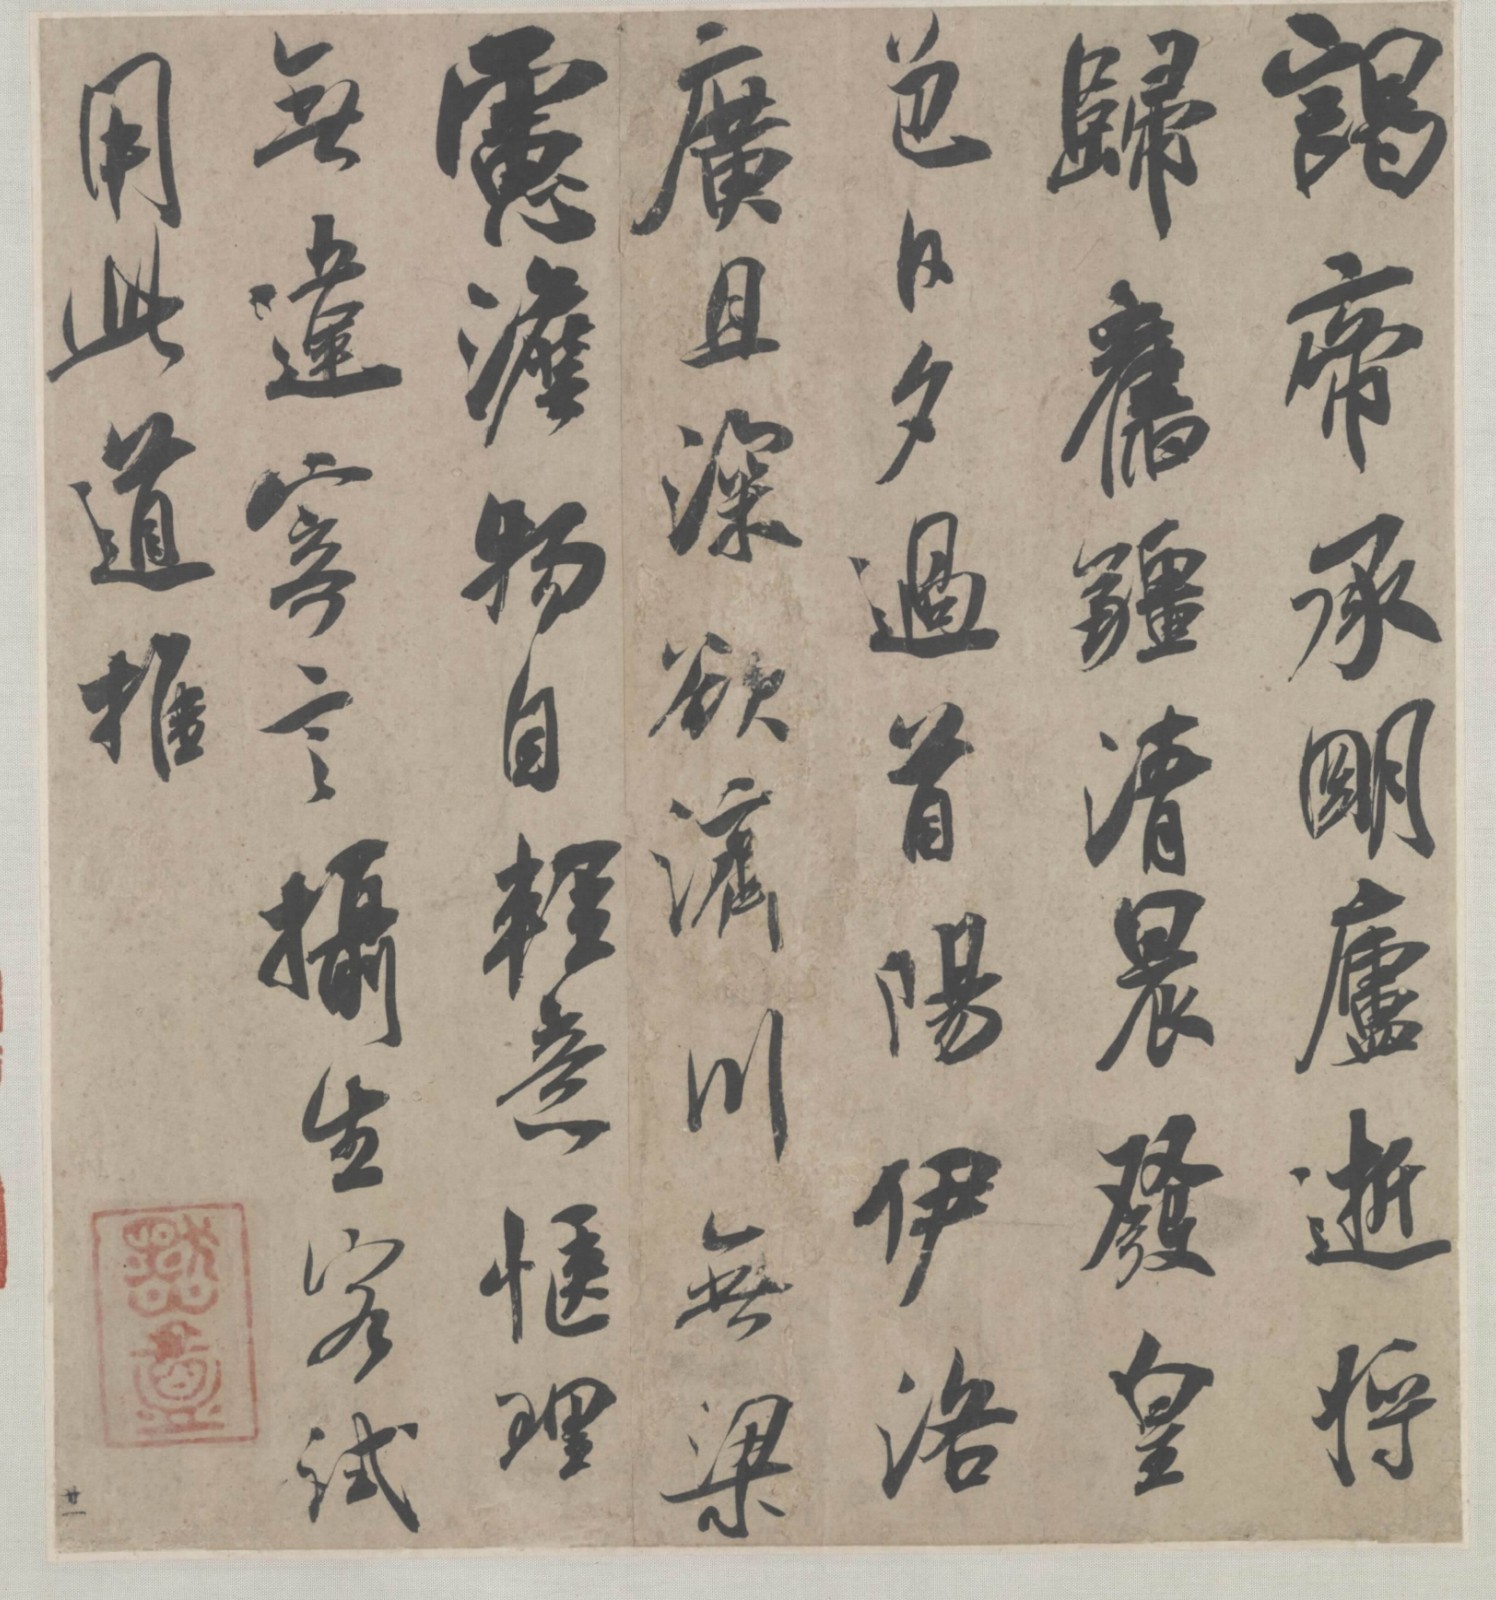 謁帝承明廬逝将
歸舊疆清晨發皇
邑日夕過首陽伊洛
廣且深欲濟川無梁
慮澹物自輕意惬理
無違寄言攝生客試
用此道推
廿一